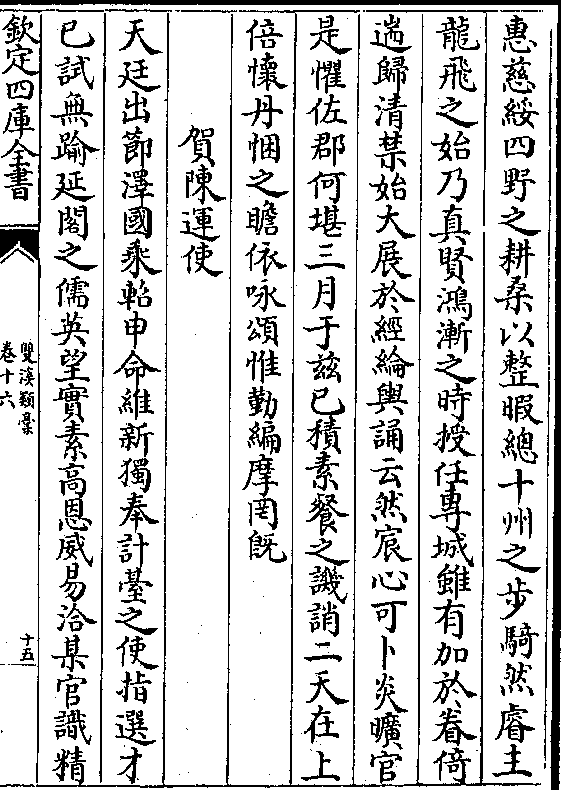 惠慈綏四野之耕桑以整暇總十州之步騎然睿主
龍飛之始乃真賢鴻漸之時授任專城雖有加於眷倚
遄歸清禁始大展於經綸輿誦云然宸心可卜炎曠官
是懼佐郡何堪三月于兹已積素餐之譏誚二天在上
倍懷丹悃之瞻依咏頌惟勤編摩罔既
賀陳運使
天廷出節澤國乘軺申命維新獨奉計臺之使指選才
已試無踰延閣之儒英望實素高恩威易洽某官識精
欽定四庫全書
雙溪類稾
卷十六
十五